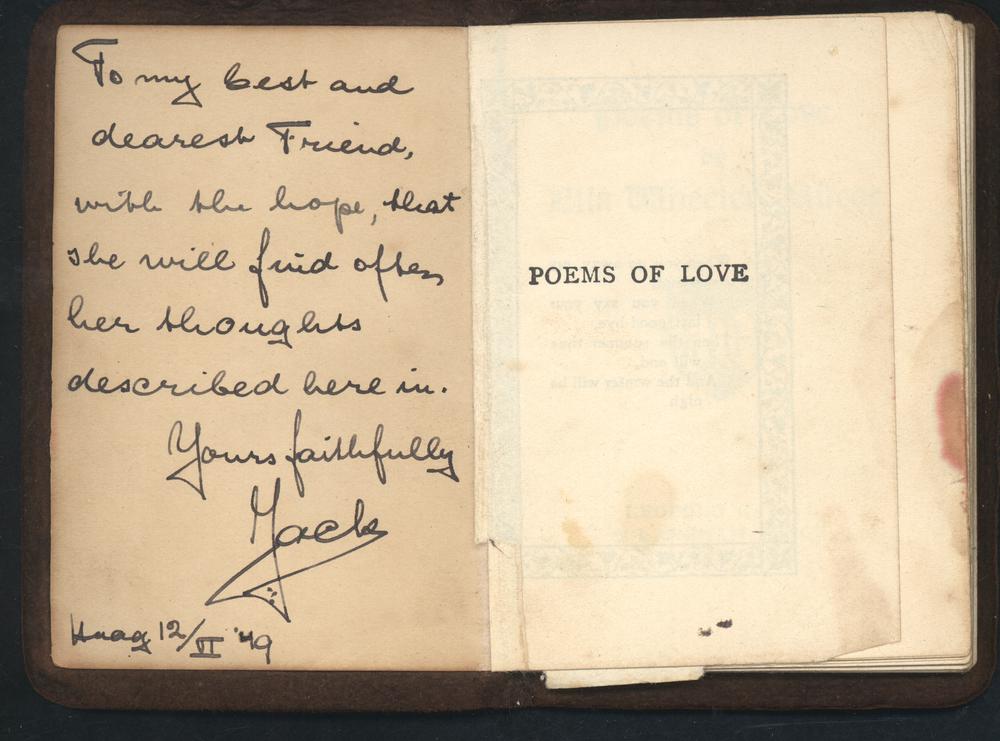 To my best and
dearest Friend,
with the hope, that
she will find often
her thoughts
described here in.
Yours faithfully
Jack
Haag 12/VI '49
POEMS OF LOVE